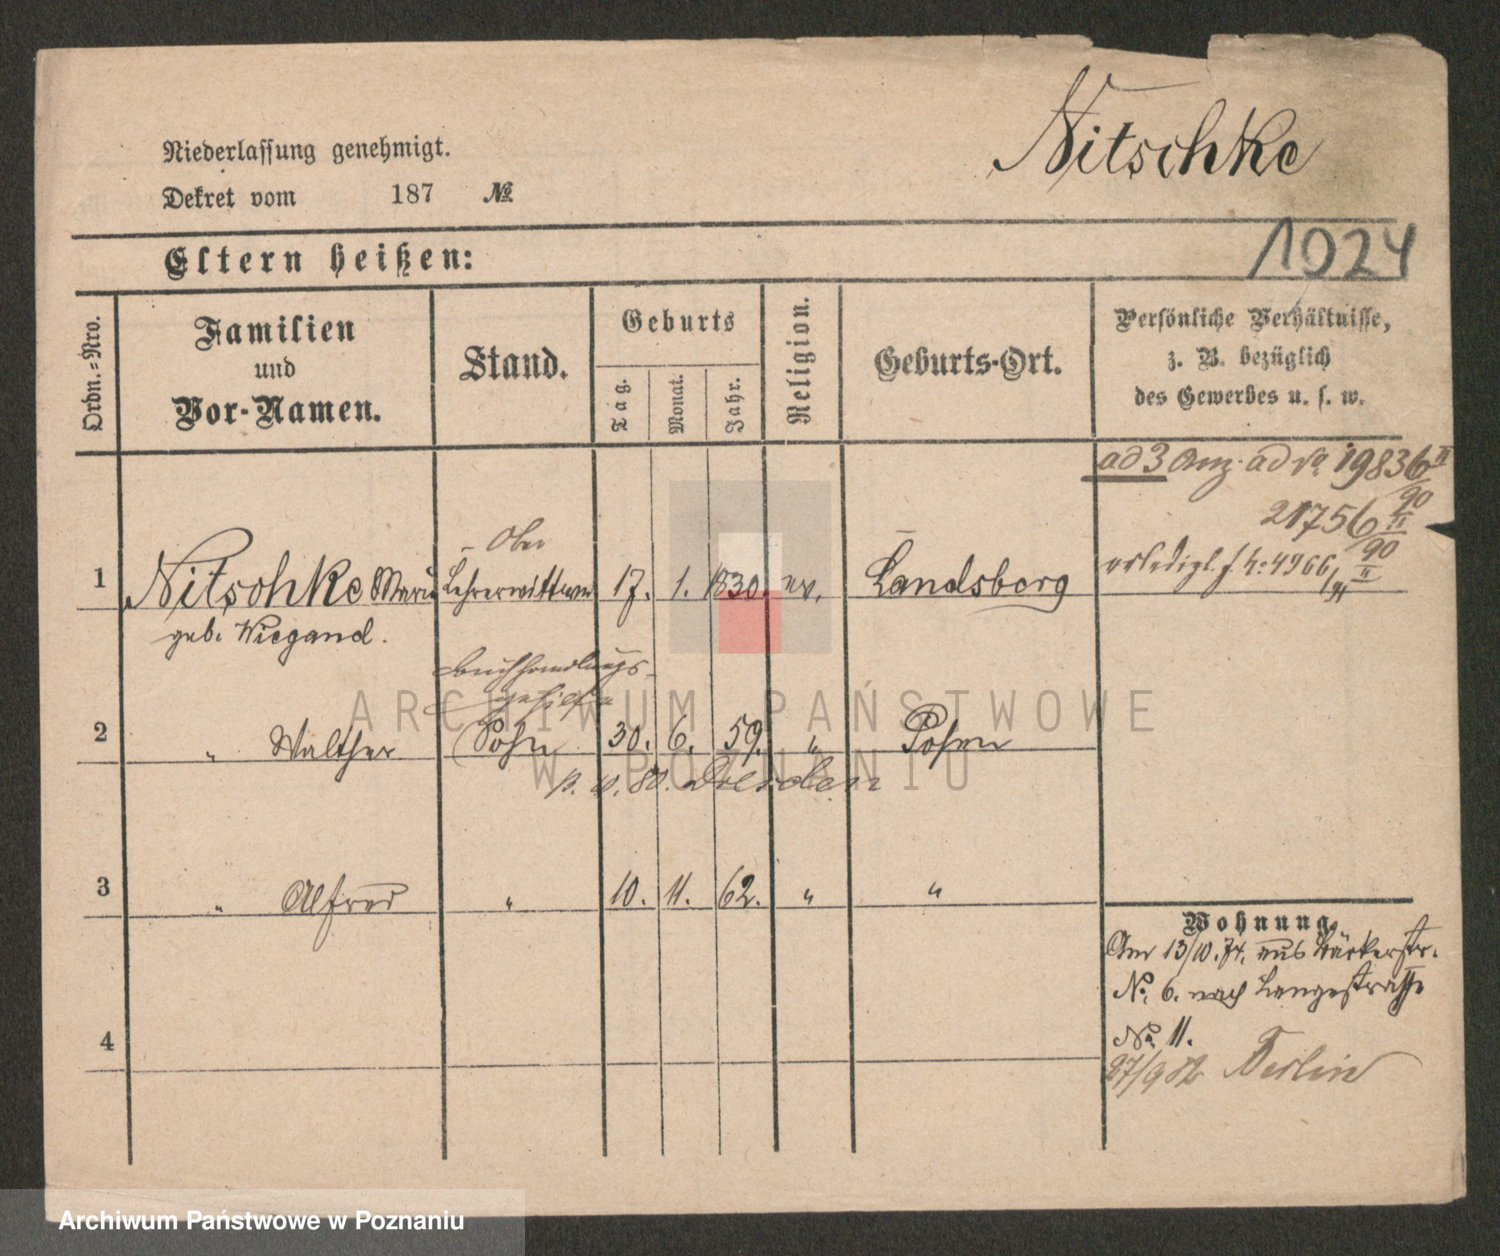 Nitschke
Niederlassung genehmigt.
Dekret vom 187 №
1024
Eltern heißen:
Ordn.-Nro.
Familien
und
Vor-Namen.
Stand.
Geburts
Tag.
Monat.
Jahr.
Religion.
Geburts-Ort.
Persönliche Verhältnisse,
z. B. bezüglich
des Gewerbes u. s. w.
ad 3 Anz. ad No 19836 II/90
21756 II/90
erledigt f. No 4966/91 II
Ober
1 Nitschke Marie Lehrerwittwe 17. 1. 1830. ev. Landsberg
geb. Wiegand.
Buchhandlungs-
2 " Walther Sohn 30. 6. 59. " Posen
p. v. 80. Dresden
3 " Alfred " 10. 11. 62. " "
4
Wohnung
Am 13/10. 74. aus Bäckerstr.
No. 6. nach Langestrasse
No. 11.
27/9 82 Berlin
ARCHIWUM PAŃSTWOWE
W POZNANIU
Archiwum Państwowe w Poznaniu